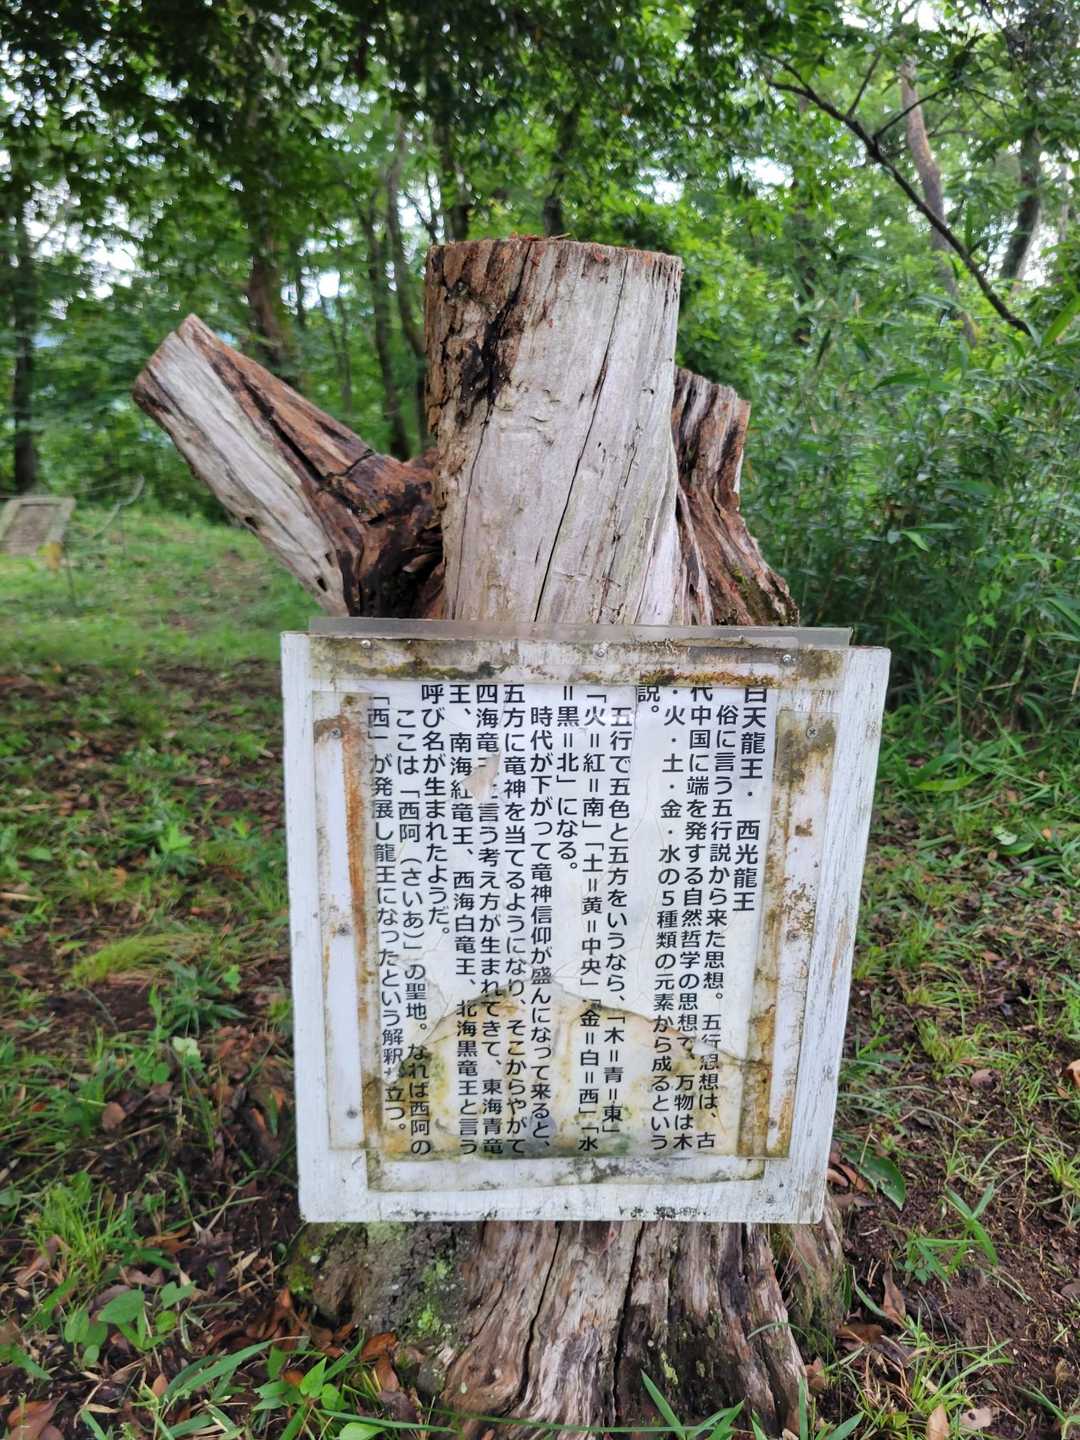 白天龍王・　西光龍王
　俗に言う五行説から来た思想。五行思想は、古
代中国に端を発する自然哲学の思想で、万物は木
・火・土・金・水の５種類の元素から成るという
説。
　五行で五色と五方をいうなら、「木＝青＝東」
「火＝紅＝南」「土＝黄＝中央」「金＝白＝西」「水
＝黒＝北」になる。
　時代が下がって竜神信仰が盛んになって来ると、
五方に竜神を当てるようになり、そこからやがて
四海竜王と言う考え方が生まれてきて、東海青竜
王、南海紅竜王、西海白竜王、北海黒竜王と言う
呼び名が生まれたようだ。
　ここは「西阿（さいあ）」の聖地。なれば西阿の
「西」が発展し龍王になったという解釈も立つ。